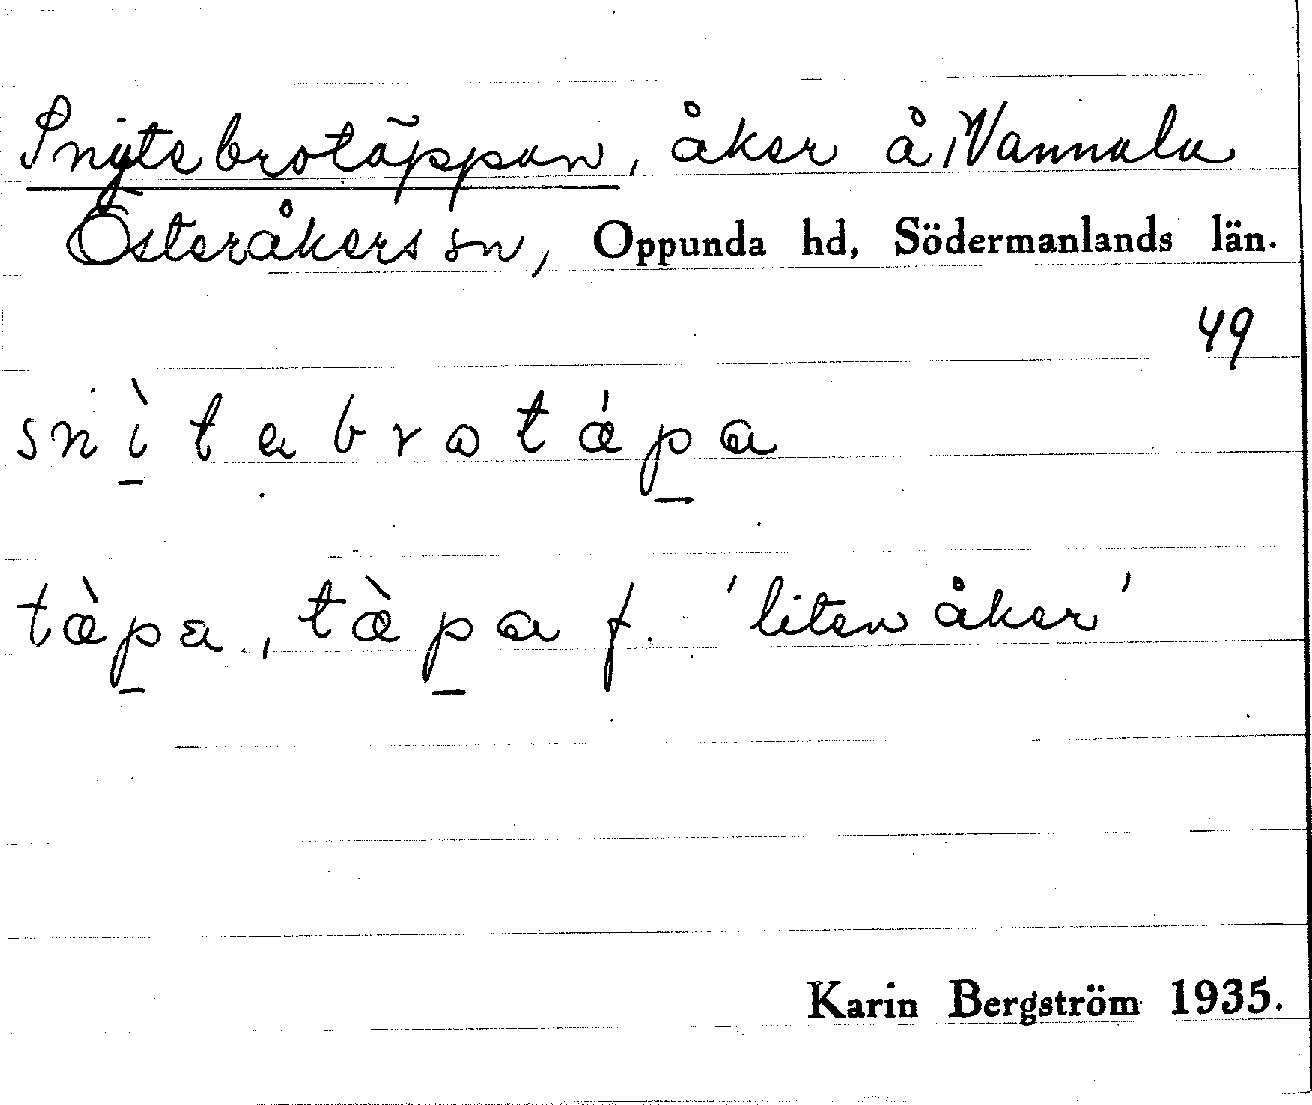 Snytebrotäppan, åker å Vannala
Österåkers sn, Oppunda hd, Södermanlands län.
49
snìtabrotǽpa
tæ̀pa, tæ̀pa f. 'liten åker'
Karin Bergström 1935.